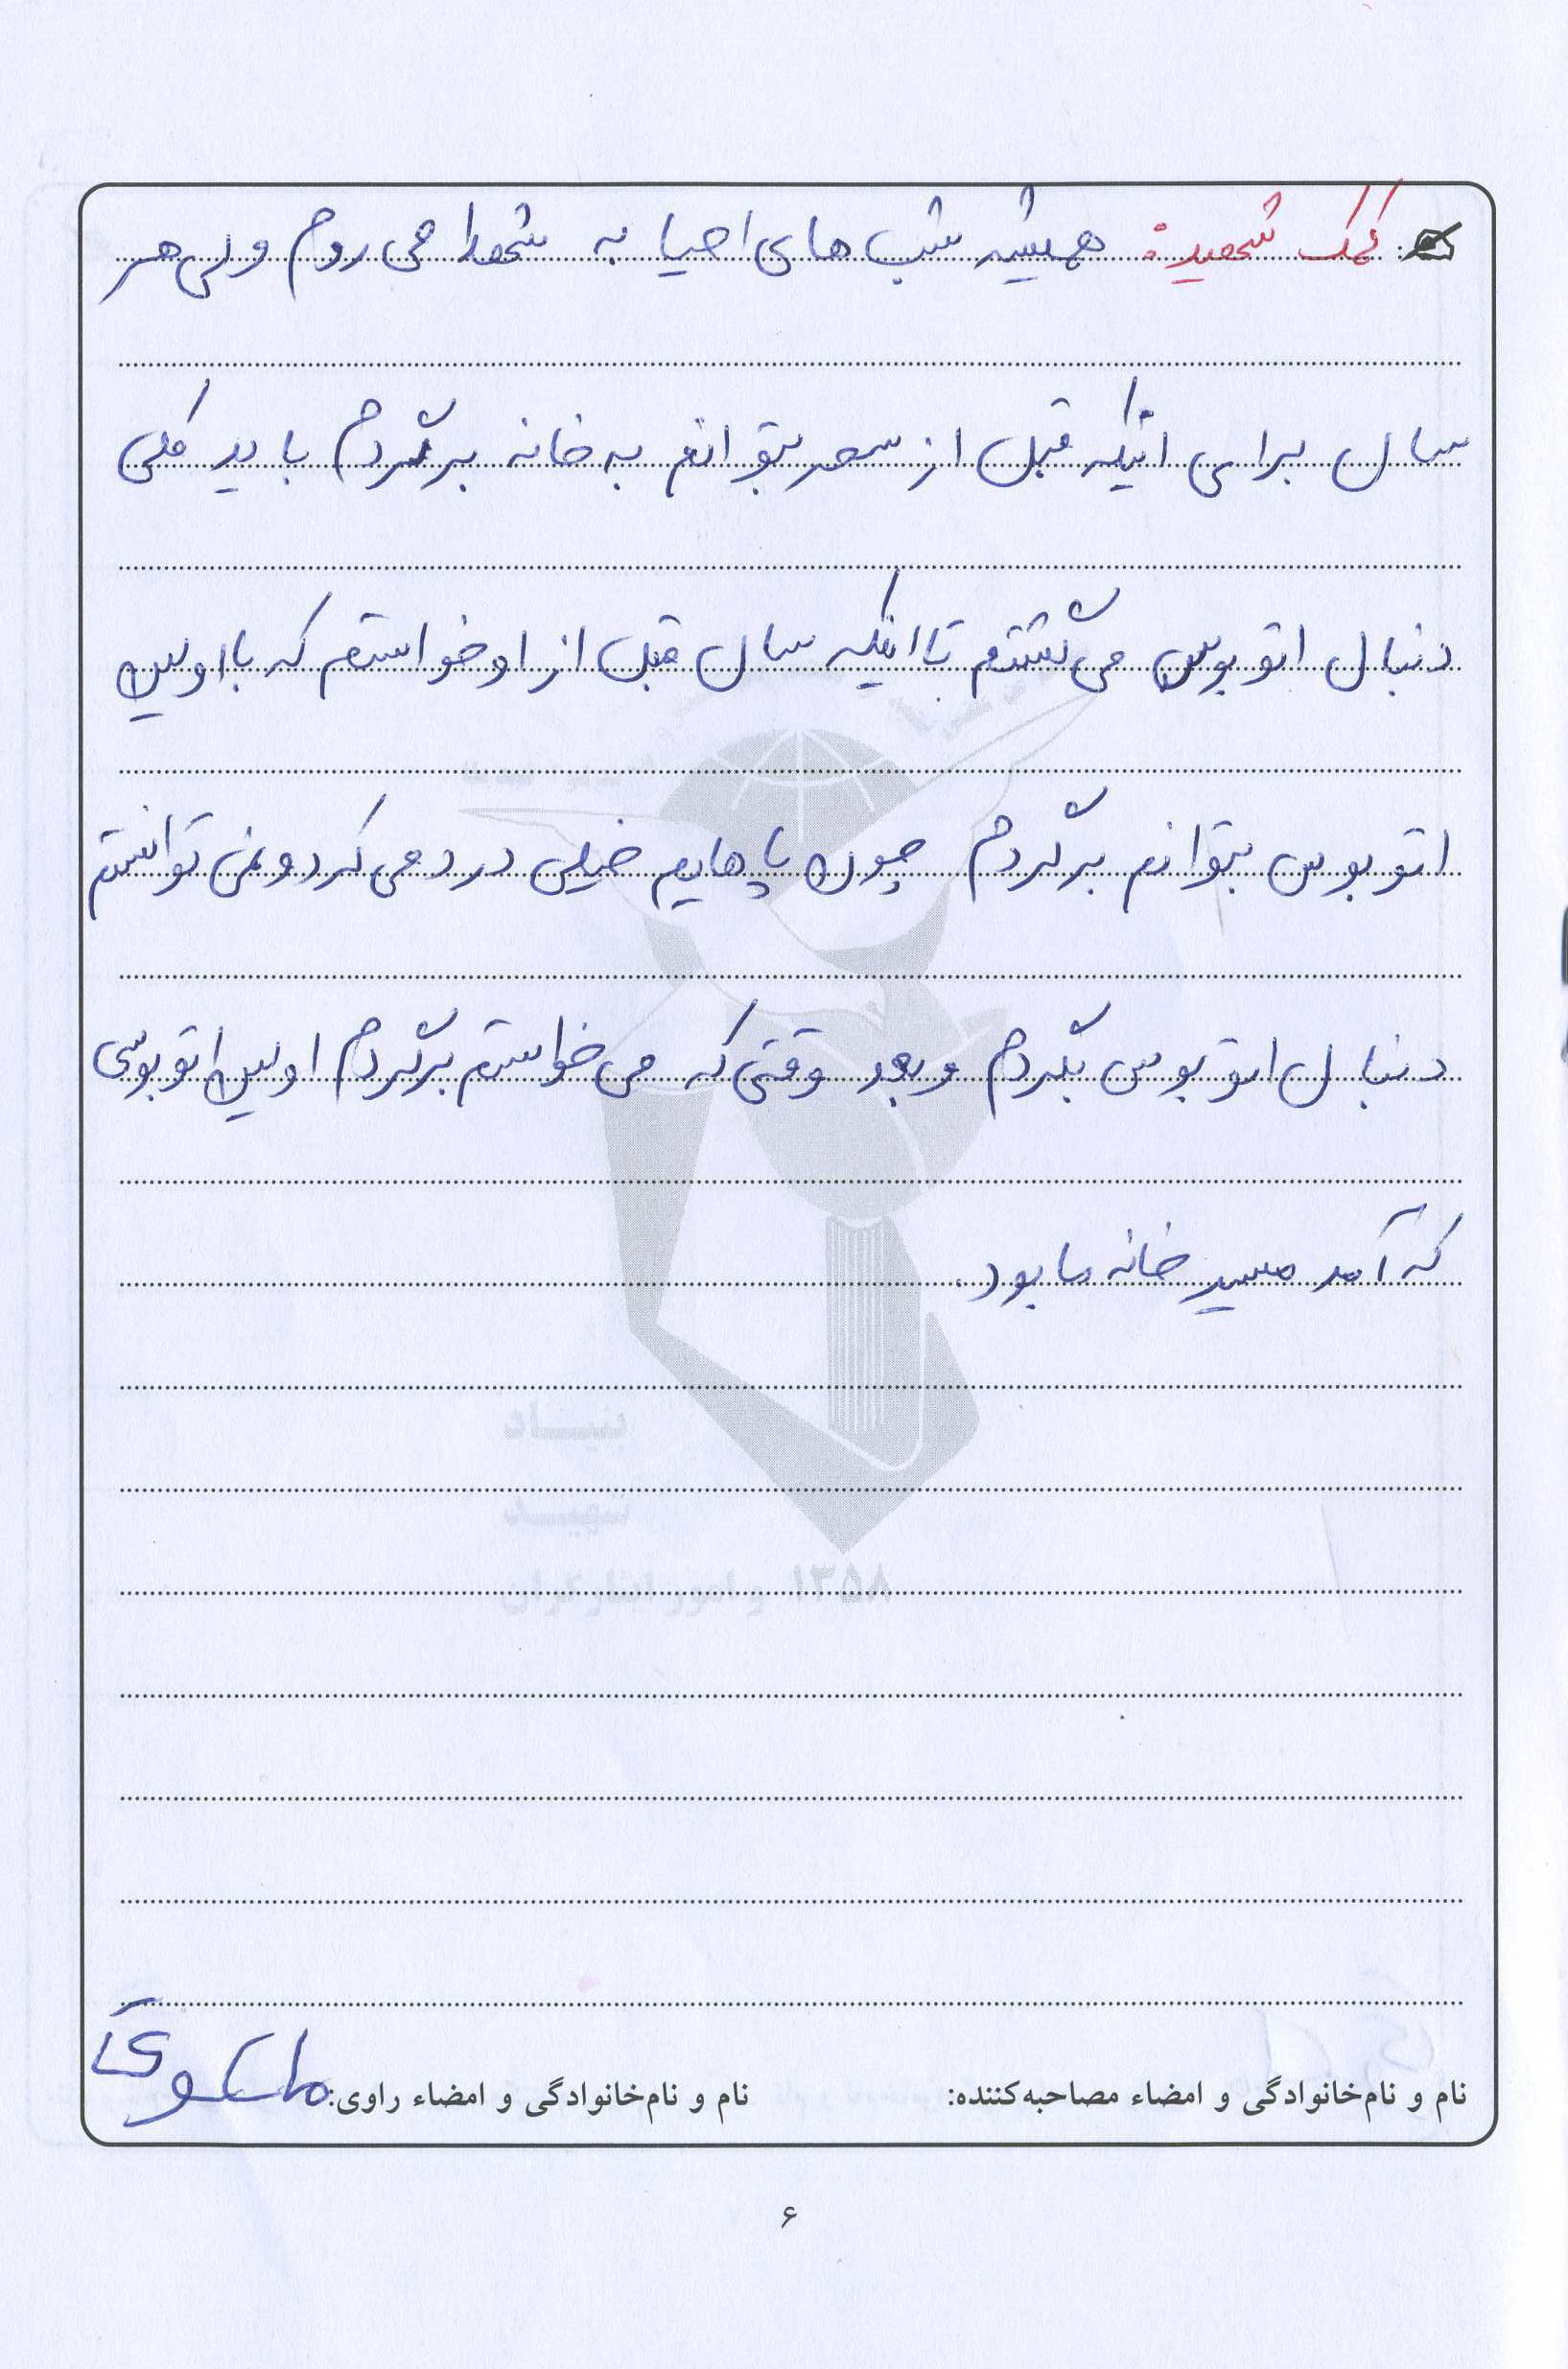 کمک شهید: همیشه شب های احیا به شهدا می روم ولی هر
سال برای اینکه قبل از سحر بتوانم به خانه برگردم باید کلی
دنبال اتوبوس می گشتم تا اینکه سال قبل از او خواستم که با اولین
اتوبوس بتوانم برگردم چون پاهایم خیلی درد می کرد و نمی توانستم
دنبال اتوبوس بگردم و بعد وقتی که می خواستم برگردم اولین اتوبوسی
که آمد مسیر خانه ما بود.
بنیاد
شهید
۱۳۵۸ و امور ایثارگران
نام و نام‌خانوادگی و امضاء مصاحبه‌کننده: نام و نام‌خانوادگی و امضاء راوی:
۶